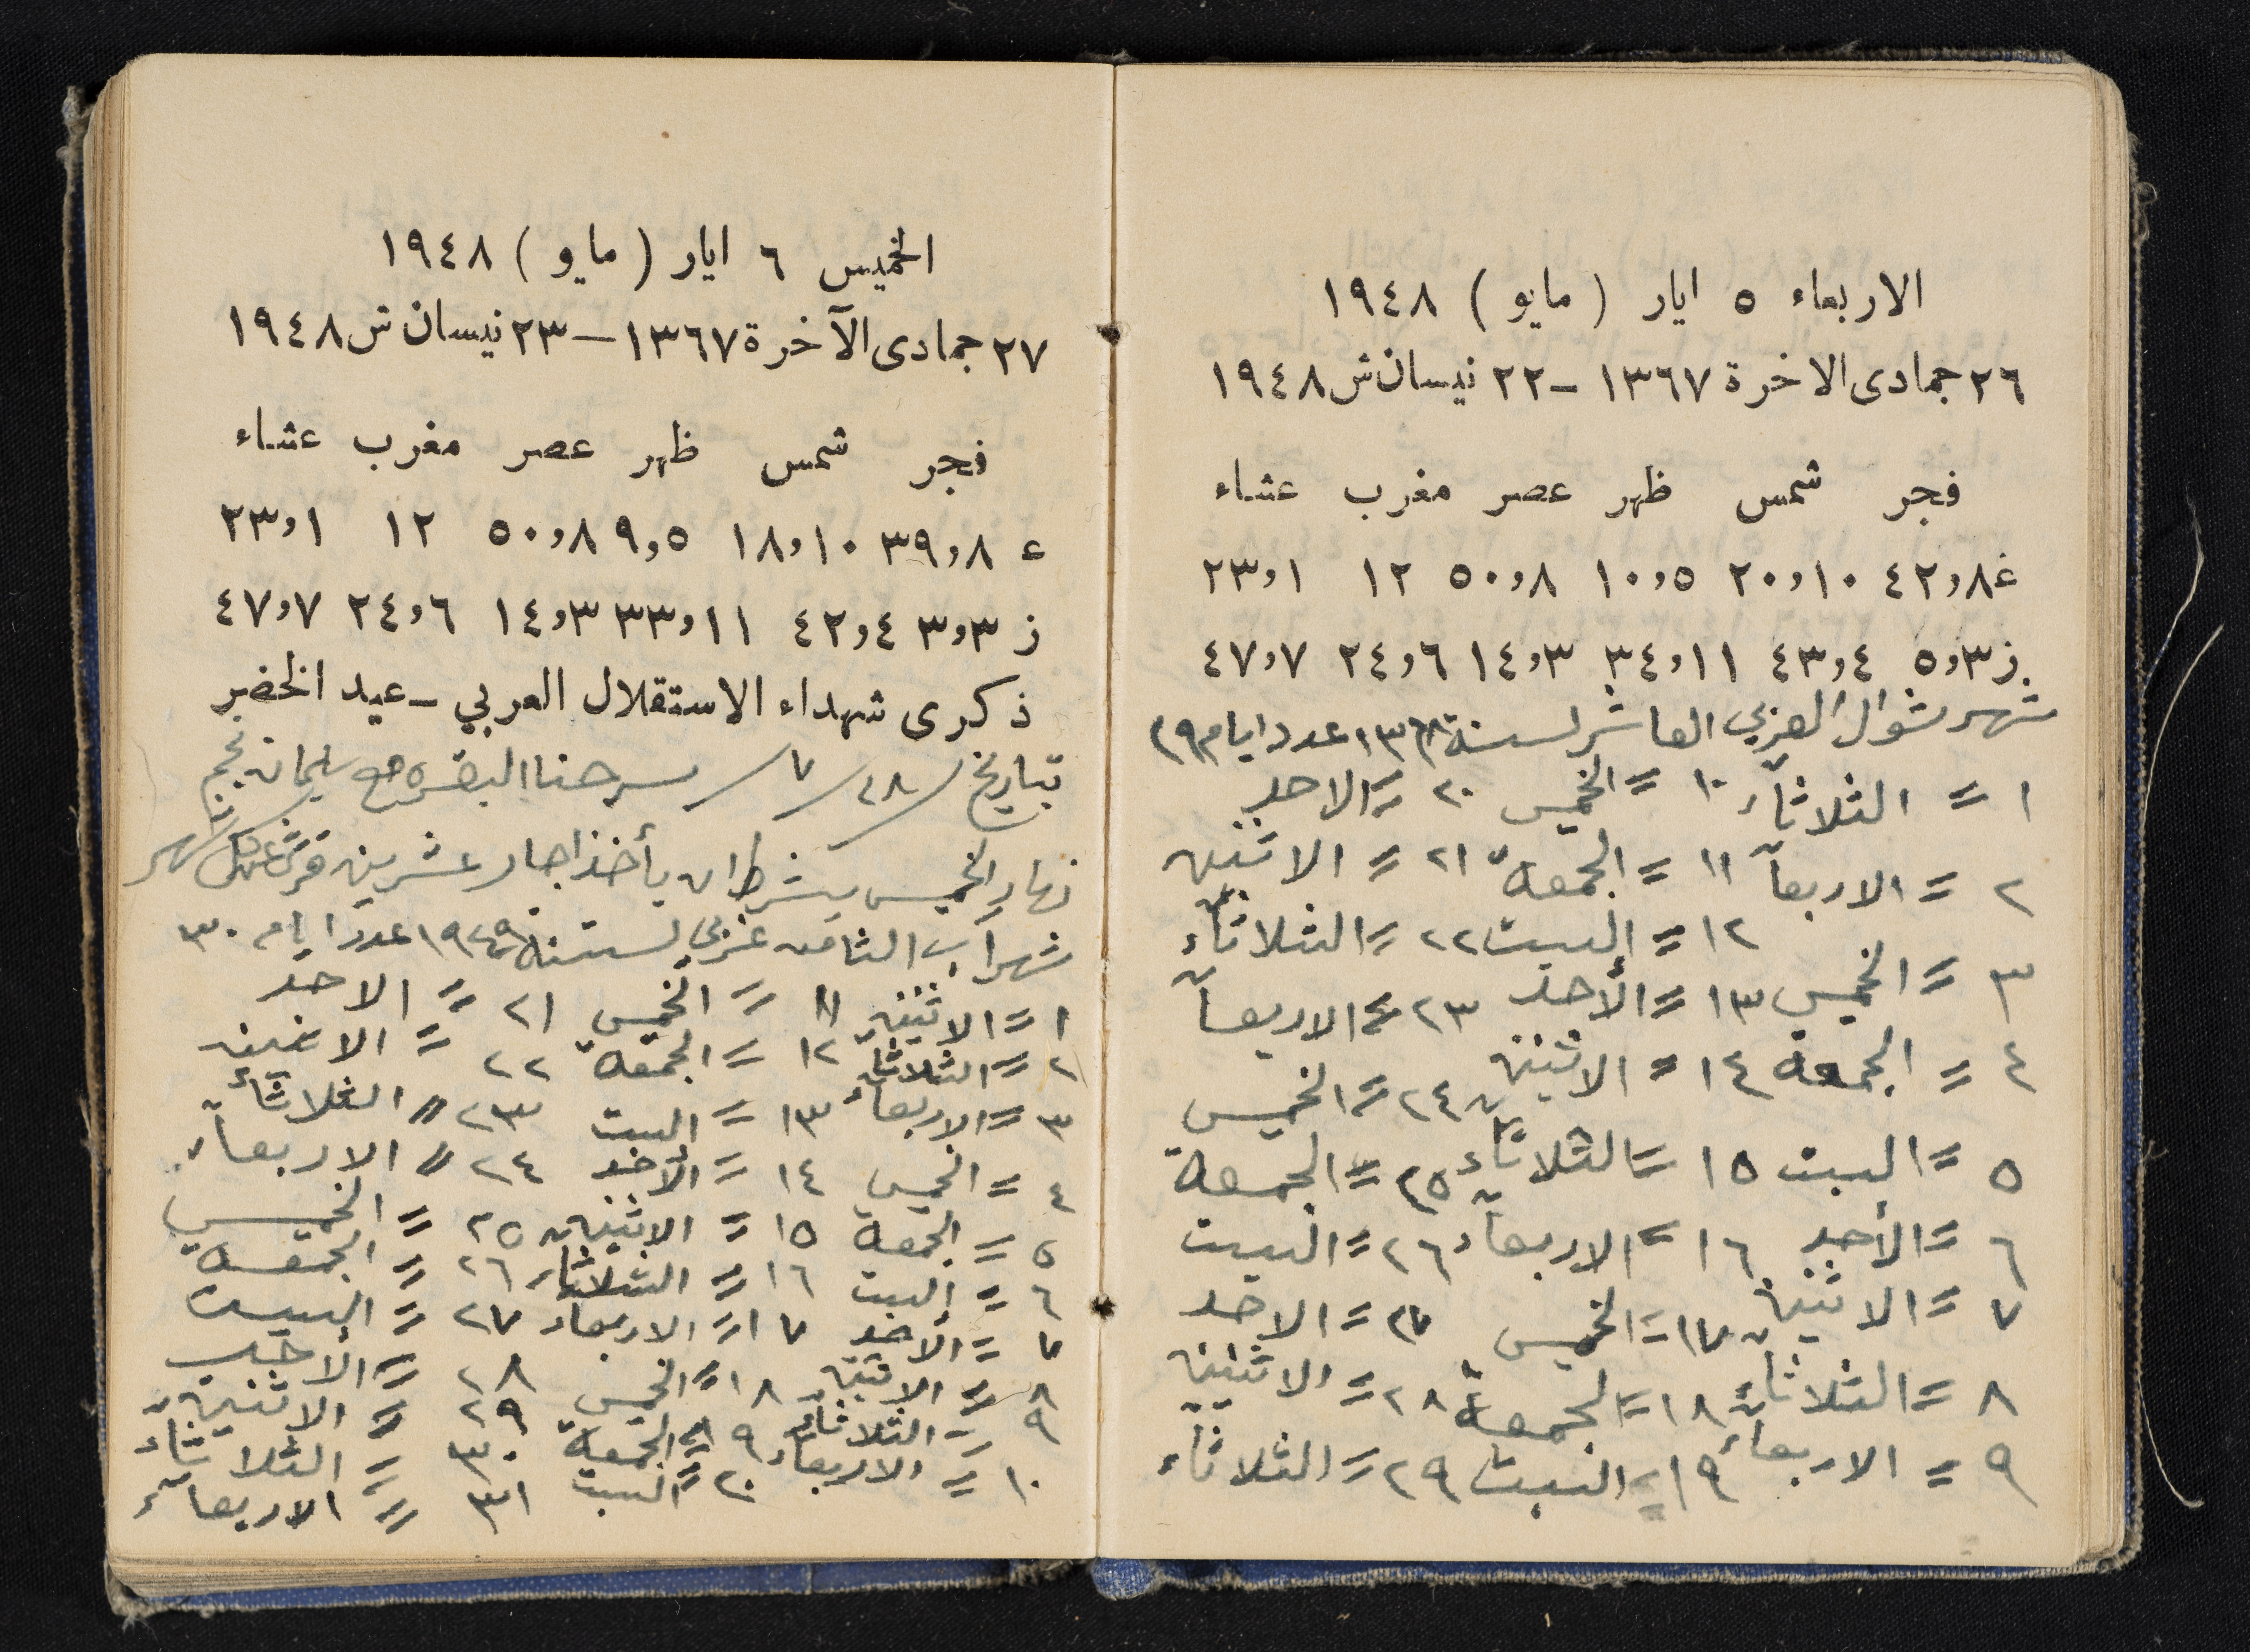 الاربعاء ٥ ايار (مايو) ١٩٤٨
٢٦ جمادى الاخرة ١٣٦٧ - ٢٢ نيسان ش ١٩٤٨
فجر شمس ظهر عصر مغرب عشاء
غ ٨و٤٢ ١٠و٢٠ ٥و١٠ ٨و٥٠ ١٢ ١و٢٣
ز ٣و٥ ٤و٤٣ ١١و٣٤ ٣و١٤ ٦و٢٤ ٧و٤٧
شهر شوال العربي العاشر لسنة ١٣٦٨ عدد ايام ٢٩
١ = الثلاثاء ١٠ = الخميس ٢٠ = الاحد
٢ = الاربعآ ١١ = الجمعة ٢١ = الاثنين
١٢ = السبت ٢٢ = الثلاثاء
٣ = الخميس ١٣ = الأحد ٢٣ = الاربعآ
٤ = الجمعة ١٤ = الاثنين ٢٤ = الخميس
٥ = السبت ١٥ = الثلاثآء ٢٥ = الجمعة
٦ = الأحد ١٦ = الاربعآء ٢٦ = السبت
٧ = الاثنين ١٧ = الخميس ٢٧ = الاحد
٨ = الثلاثاء ١٨ = الجمعة ٢٨ = الاثنين
٩ = الاربعاء ١٩ = السبت ٢٩ = الثلاثاء
الخميس ٦ ايار (مايو) ١٩٤٨
٢٧ جمادى الآخرة ١٣٦٧ - ٢٣ نيسان ش ١٩٤٨
فجر شمس ظهر عصر مغرب عشاء
ع ٨و٣٩ ١٠و١٨ ٥و٩ ٨و٥٠ ١٢ ١و٢٣
ز ٣و٣ ٤و٤٢ ١١و٣٣ ٣و١٤ ٦و٢٤ ٧و٤٧
ذكرى شهداء الاستقلال العربي - عيد الخضر
بتاريخ / ٢٨ / ٧ / سرحنا البقره مع سليمان نجم
نهار الخميس بشرط ان يأخذ اجار عشرين قرش عن كل شهر
شهر آب الثامن غربي لسنة ١٩٤٩ عدد ايام ٣٠
١ = الاثنين ١١ = الخميس ٢١ = الاحد
٢ = الثلاثآ ١٢ = الجمعة ٢٢ = الاثنين
٣ = الاربعآء ١٣ = السبت ٢٣ = الثلاثآء
٤ = الخميس ١٤ = الأحد ٢٤ = الاربعآء
٥ = الجمعة ١٥ = الاثنين ٢٥ = الخميس
٦ = السبت ١٦ = الثلاثآء ٢٦ = الجمعة
٧ = الأحد ١٧ = الاربعاء ٢٧ = السبت
٨ = الاثنين ١٨ = الخميس ٢٨ = الأحد
٩ = الثلاثآء ١٩ = الجمعة ٢٩ = الاثنين
١٠ = الاربعآء ٢٠ = السبت ٣٠ = الثلاثاء
٣١ = الاربعآء